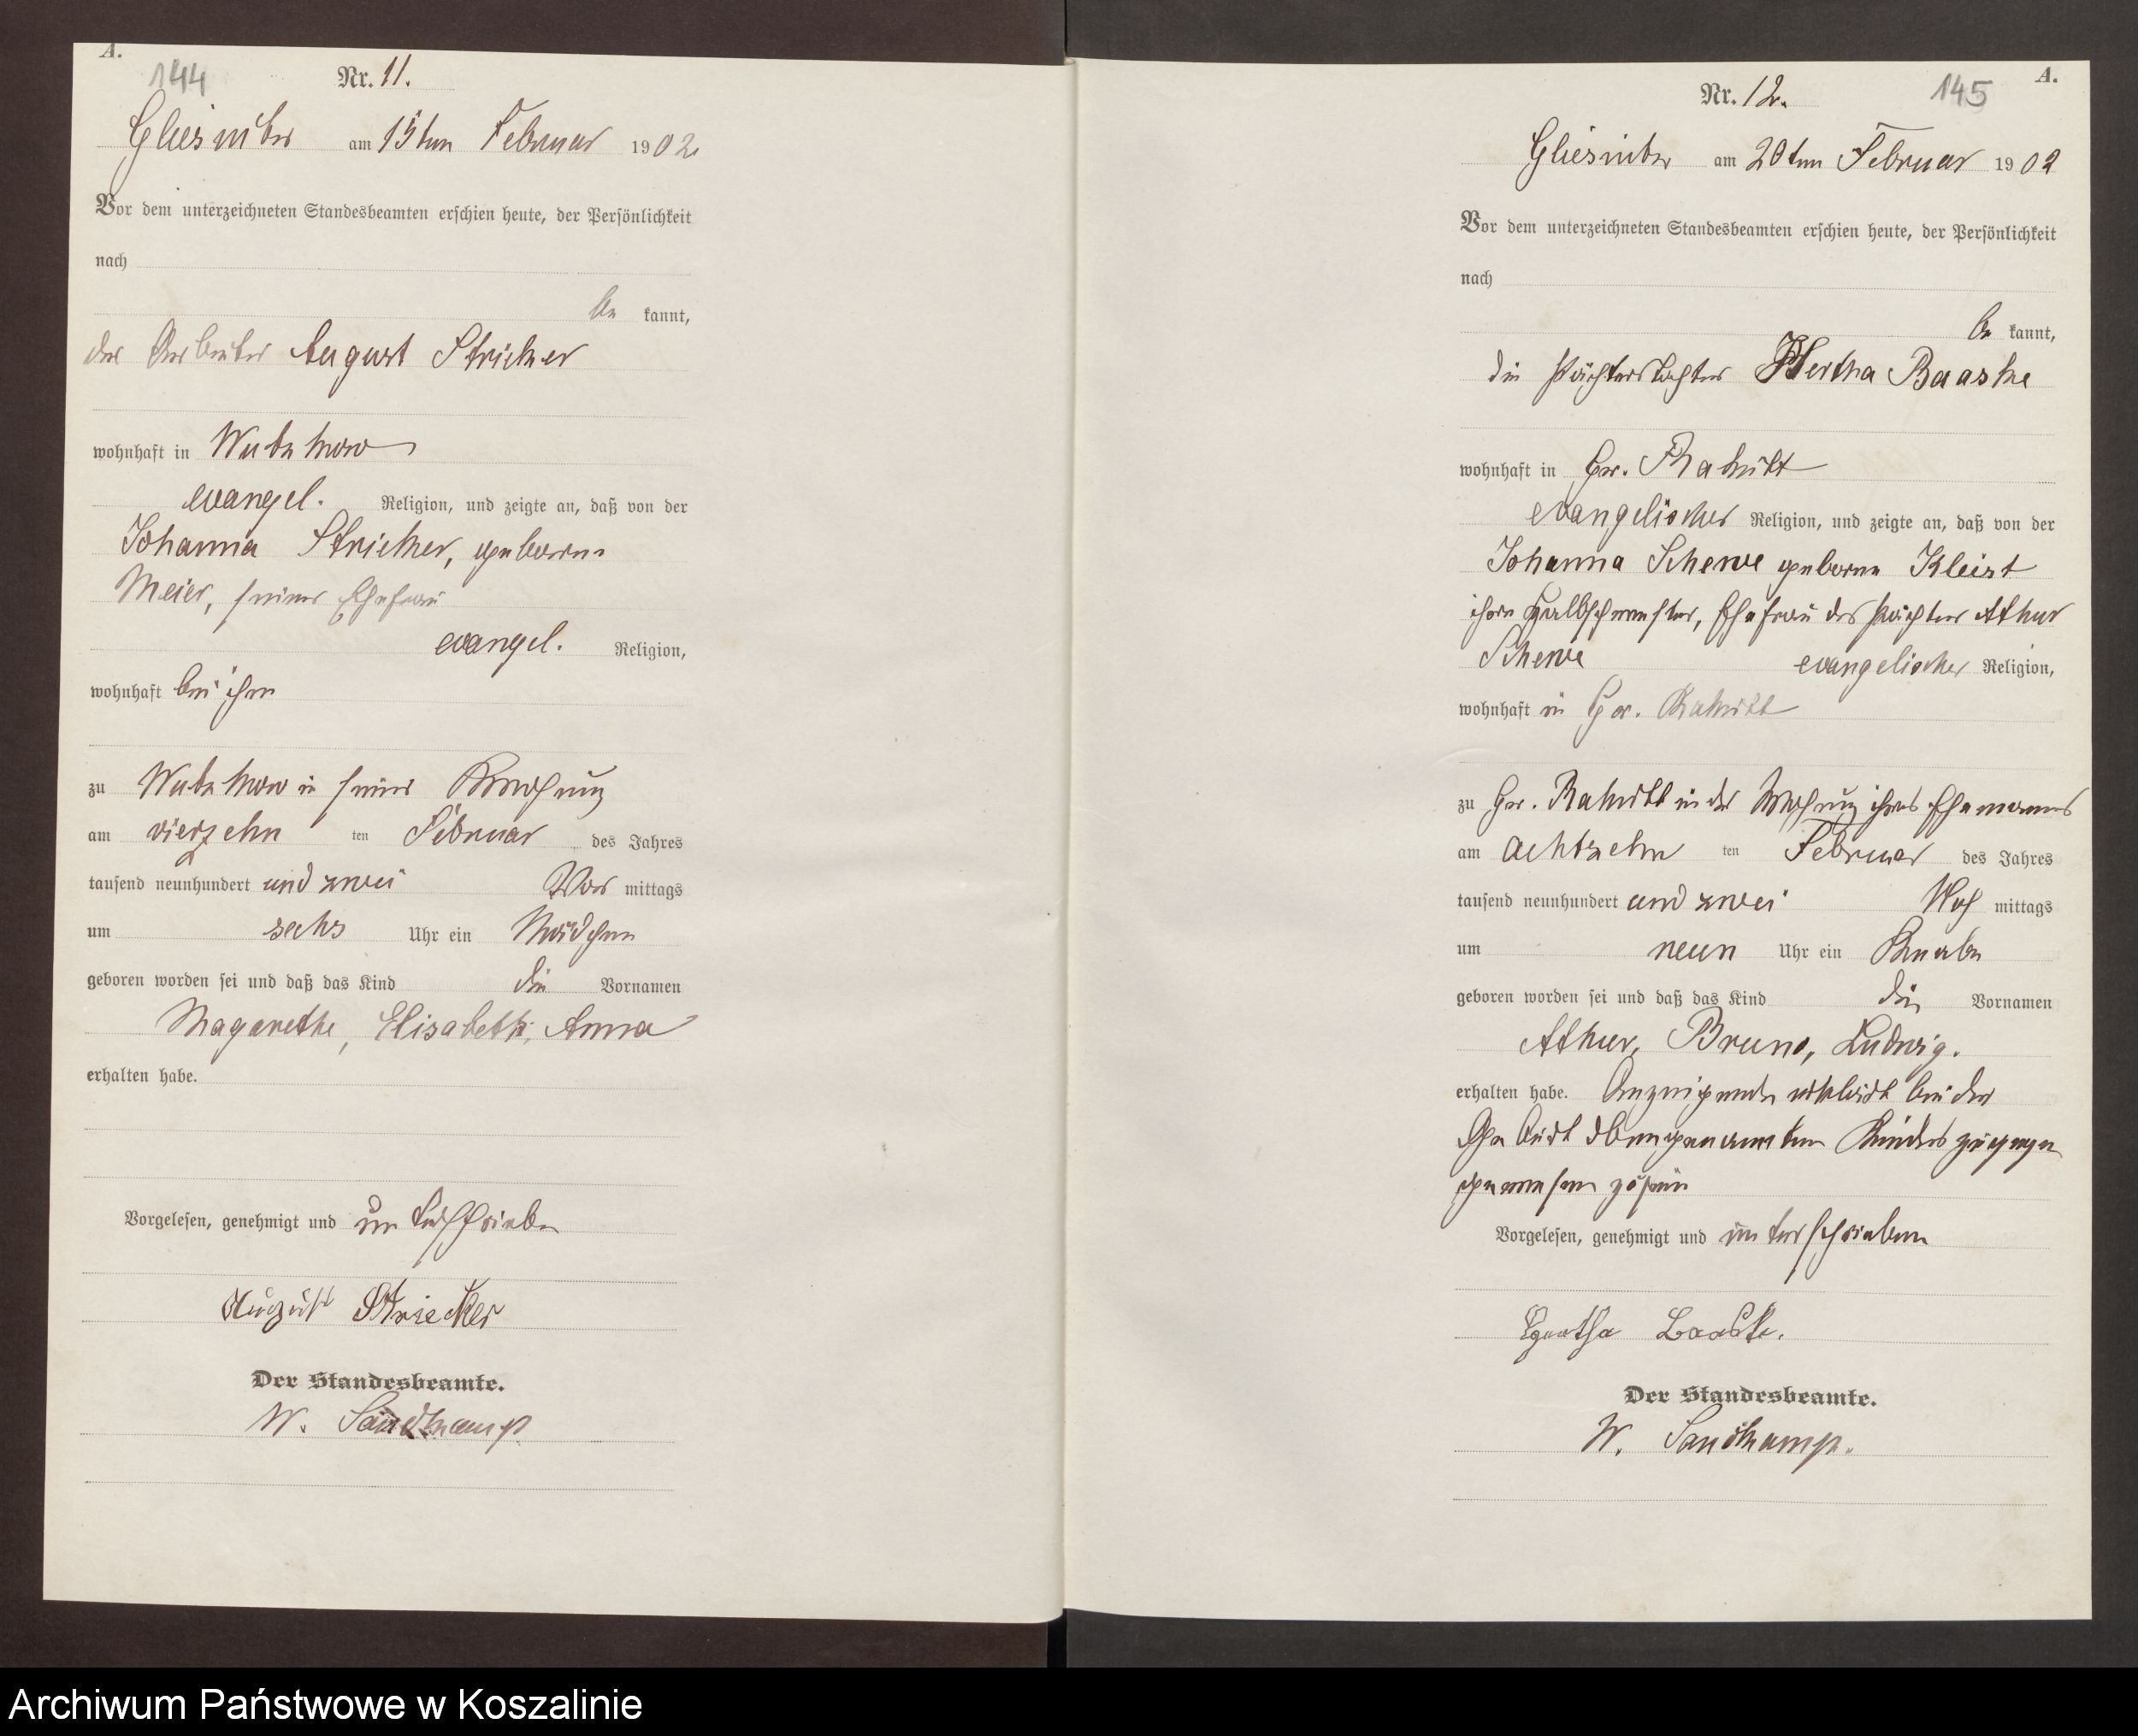 A.
144
Nr. 11.
Gliesnitz am 15ten Februar 1902
Vor dem unterzeichneten Standesbeamten erschien heute, der Persönlichkeit
nach
be kannt,
der Arbeiter August Striecker
wohnhaft in Wutzkow
evangel. Religion, und zeigte an, daß von der
Johanna Striecker, geborene
Meier, seiner Ehefrau
evangel. Religion,
wohnhaft bei ihm
zu Wutzkow in seiner Wohnung
am vierzehn ten Februar des Jahres
tausend neunhundert und zwei Vor mittags
um sechs Uhr ein Mädchen
geboren worden sei und daß das Kind die Vornamen
Magarethe, Elisabeth, Anna
erhalten habe.
Vorgelesen, genehmigt und unterschrieben
August Striecker
Der Standesbeamte.
W. Sandkamp
A.
145
Nr. 12.
Gliesnitz am 20ten Februar 1902
Vor dem unterzeichneten Standesbeamten erschien heute, der Persönlichkeit
nach
be kannt,
die Pächterstochter Hertha Baaske
wohnhaft in Gr. Rakitt
evangelischer Religion, und zeigte an, daß von der
Johanna Schewe geborene Kleist
ihre Halbschwester, Ehefrau des Pächters Athur
Schewe evangelischer Religion,
wohnhaft in Gr. Rakitt
zu Gr. Rakitt in der Wohnung ihres Ehemannes
am achtzehn ten Februar des Jahres
tausend neunhundert und zwei Nach mittags
um neun Uhr ein Knabe
geboren worden sei und daß das Kind die Vornamen
Athur, Bruno, Ludwig.
erhalten habe. Anzeigende erklärt bei der
Geburt obengenannten Kindes zugegen
gewesen zu sein
Vorgelesen, genehmigt und unterschrieben
Hertha Baaske.
Der Standesbeamte.
W. Sandkamp.
Archiwum Państwowe w Koszalinie